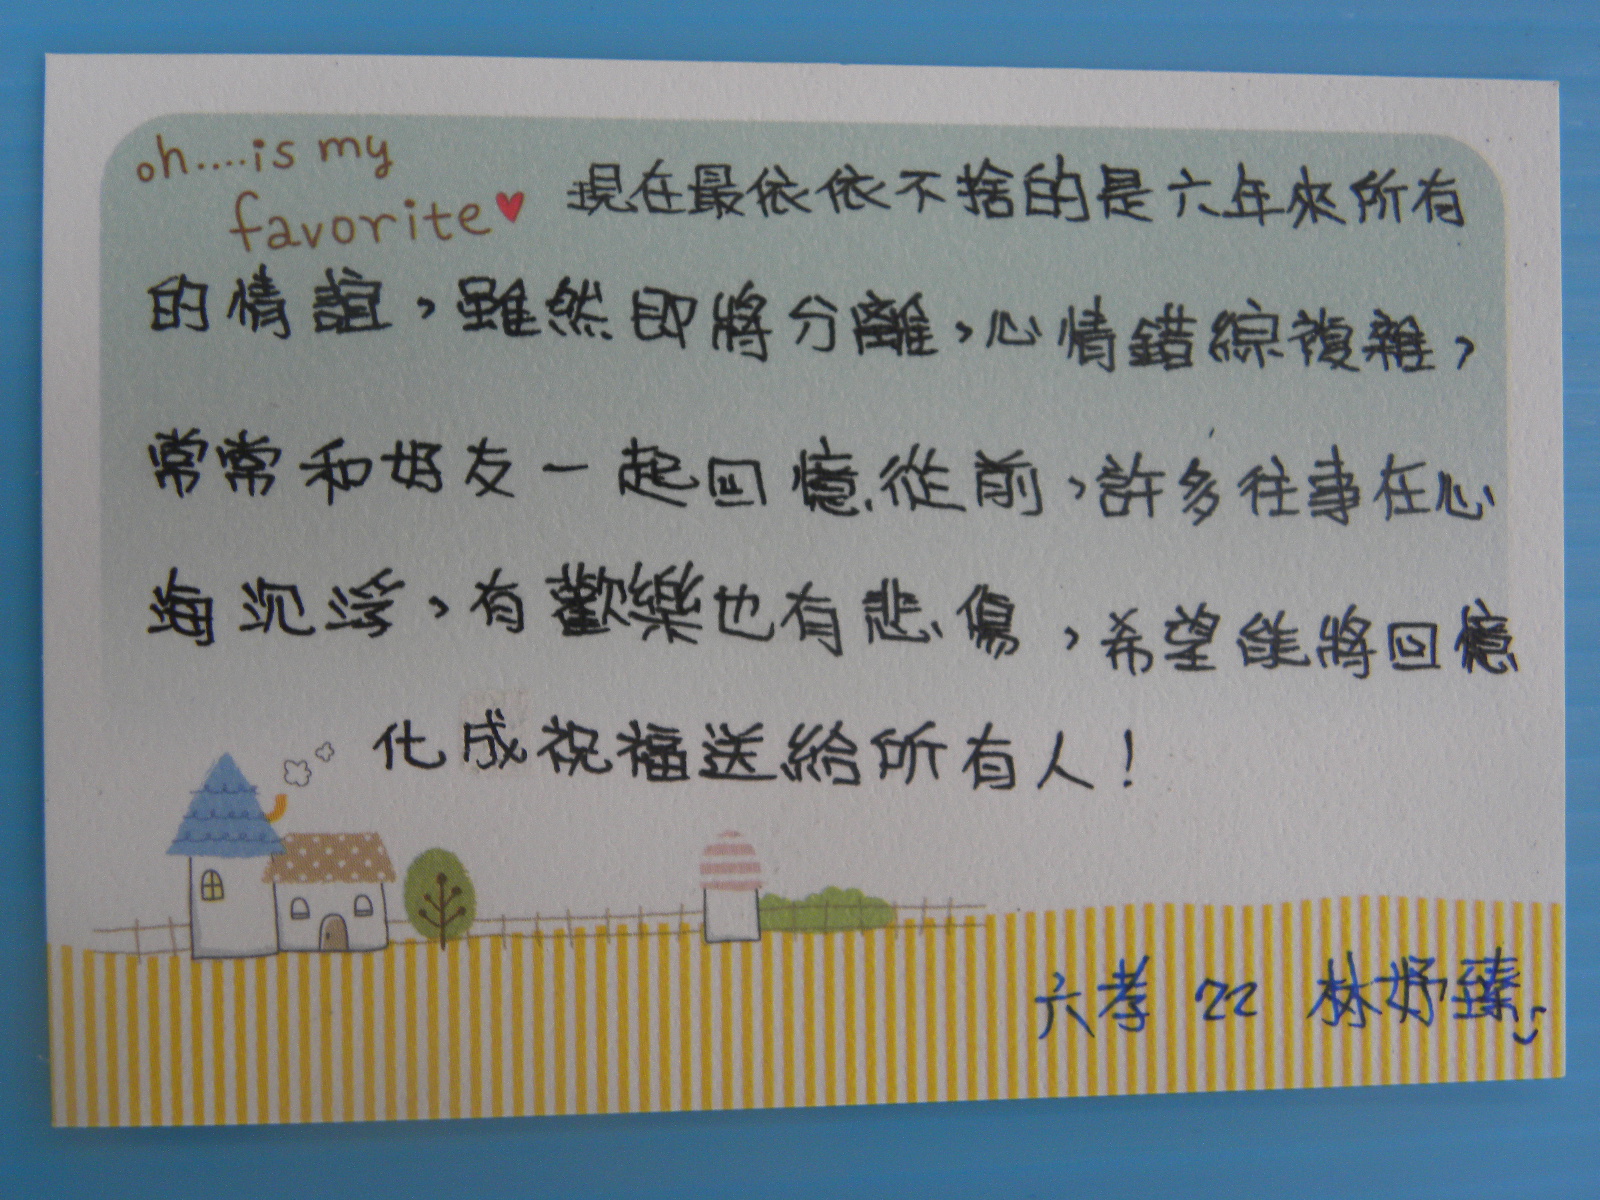 oh....is my
favorite
現在最依依不捨的是六年來所有
的情誼，雖然即將分離，心情錯綜複雜，
常常和好友一起回憶從前，許多往事在心
海沉浮，有歡樂也有悲傷，希望能將回憶
化成祝福送給所有人！
六孝 22 林妤臻